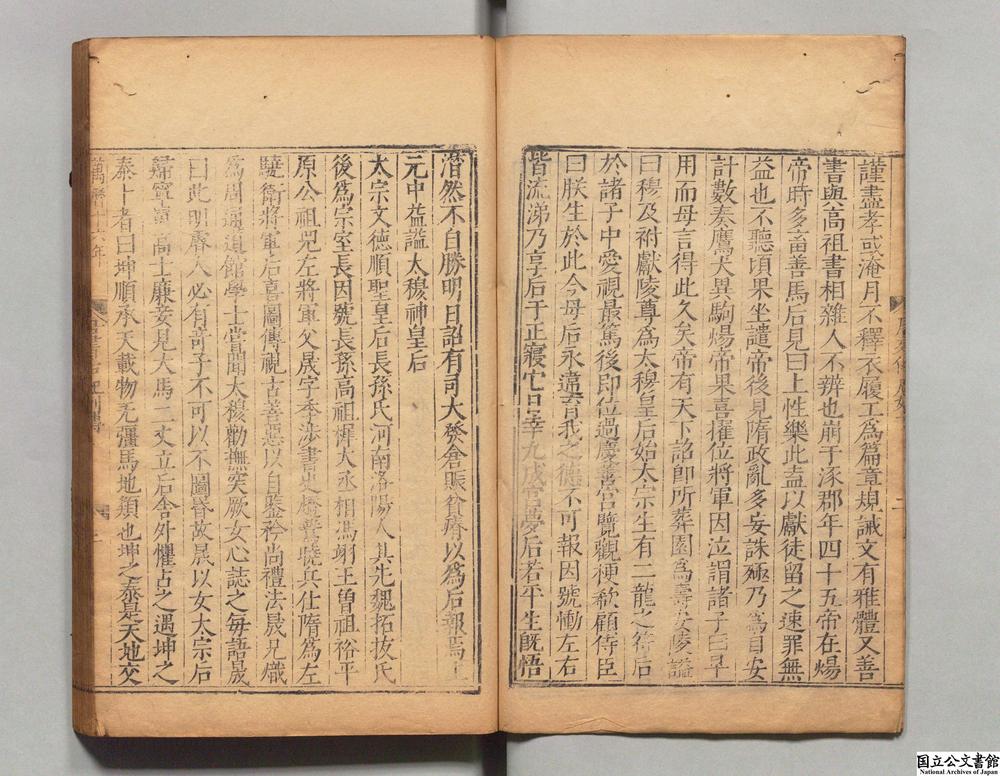 謹盡孝或淹月不釋衣履工爲篇章規誡文有雅體又善
書與高祖書相雜人不辨也崩于涿郡年四十五帝在煬
帝時多畜善馬后見曰上性樂此盍以獻徒留之速罪無
益也不聽頃果坐譴帝後見隋政亂多妄誅殛乃爲自安
計數奏鷹犬異駒煬帝果喜擢位將軍因泣謂諸子曰早
用而母言得此久矣帝有天下詔即所葬園爲壽安陵謚
曰穆及祔獻陵尊爲太穆皇后始太宗生有二龍之符后
於諸子中愛視最篤後即位過慶善宫覽觀梗欷顧侍臣
曰朕生於此今母后永違育我之德不可報因號慟左右
皆流涕乃享后于正寢它日幸九成宫夢后若平生既悟
潸然不自勝明日詔有司大發倉賑貧瘠以爲后報焉上
元中益謚太穆神皇后
太宗文德順聖皇后長孫氏河南洛陽人其先魏拓拔氏
後爲宗室長因號長孫高祖稚大丞相馮翊王曾祖裕平
原公祖兕左將軍父晟字季涉書史趫鷙曉兵仕隋爲左
驍衛將軍后喜圖傳視古善惡以自鑒矜尚禮法晟兄熾
爲周通道館學士嘗聞太穆勸撫突厥女心誌之每語晟
曰此明睿人必有奇子不可以不圖昏故晟以女太宗后
歸寧舅高士廉妾見大馬二丈立后舍外懼占之遇坤之
泰卜者曰坤順承天載物无彊馬地類也坤之泰是天地交
萬曆十六年
唐書后妃列傳
国立公文書館
National Archives of Japan